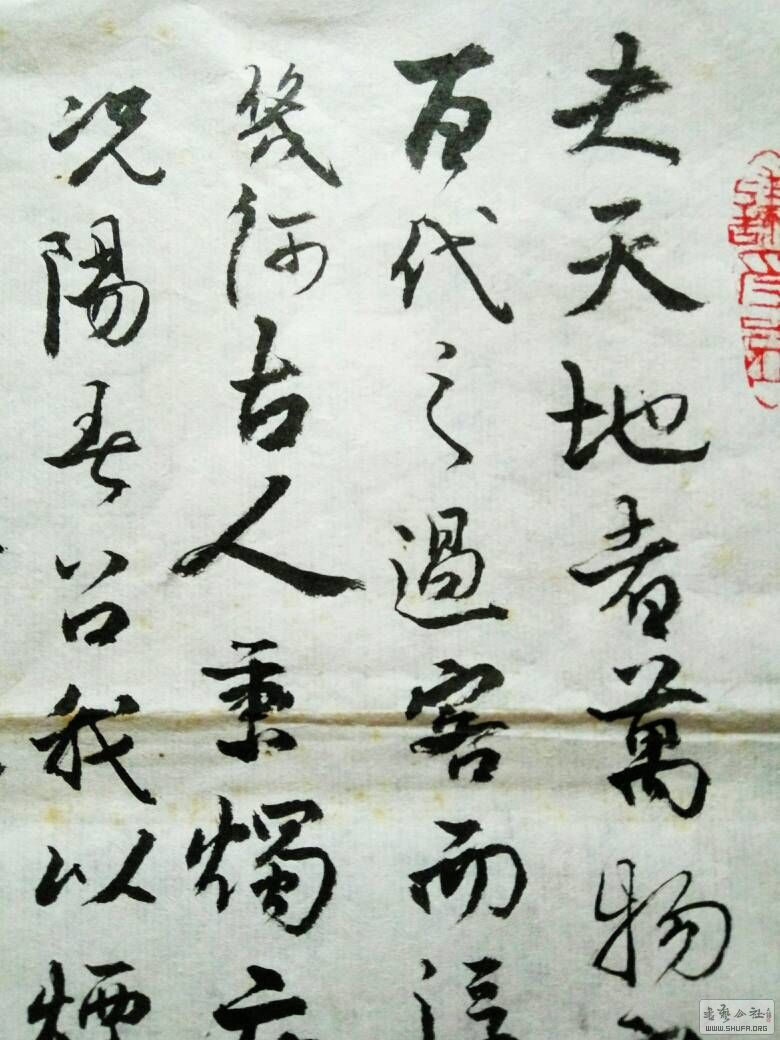 夫天地者萬物
百代之過客而浮
幾何古人秉燭夜
况陽春召我以煙
書藝公社
WWW.SHUFA.ORG